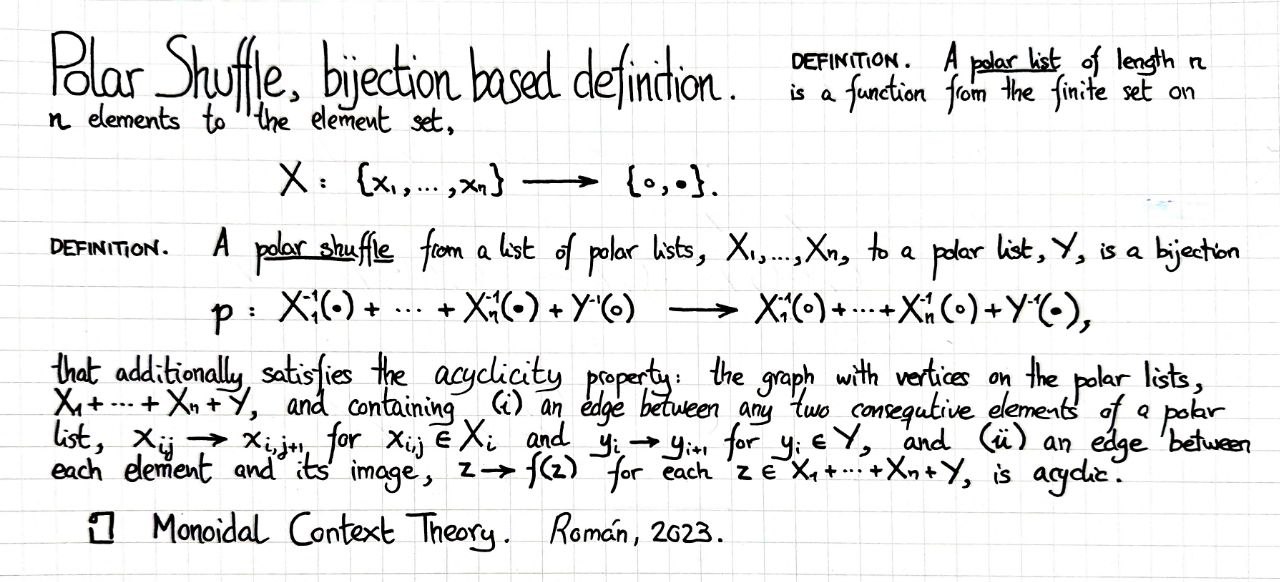 Polar Shuffle, bijection based definition. DEFINITION. A polar list of length n
is a function from the finite set on
n elements to the element set,
X : {x₁, ..., xₙ} ⟶ {∘, •}.
DEFINITION. A polar shuffle from a list of polar lists, X₁, ..., Xₙ, to a polar list, Y, is a bijection
p : X₁⁻¹(•) + ··· + Xₙ⁻¹(•) + Y⁻¹(∘) ⟶ X₁⁻¹(∘) + ··· + Xₙ⁻¹(∘) + Y⁻¹(•),
that additionally satisfies the acyclicity property: the graph with vertices on the polar lists,
X₁ + ··· + Xₙ + Y, and containing (i) an edge between any two consequtive elements of a polar
list, x_{ij} → x_{i,j+1} for x_{i,j} ∈ X_i and y_i → y_{i+1} for y_i ∈ Y, and (ii) an edge between
each element and its image, z → f(z) for each z ∈ X₁ + ··· + Xₙ + Y, is acyclic.
Monoidal Context Theory. Román, 2023.